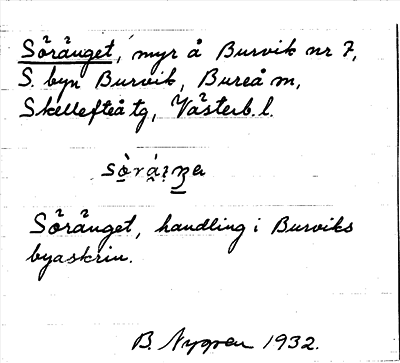 Söränget, myr å Burvik nr 7,
S. byn Burvik, Bureå sn,
Skellefteå tg, Västerb. l.
Söränget, handling i Burviks
byaskrin.
B. Nygren 1932.